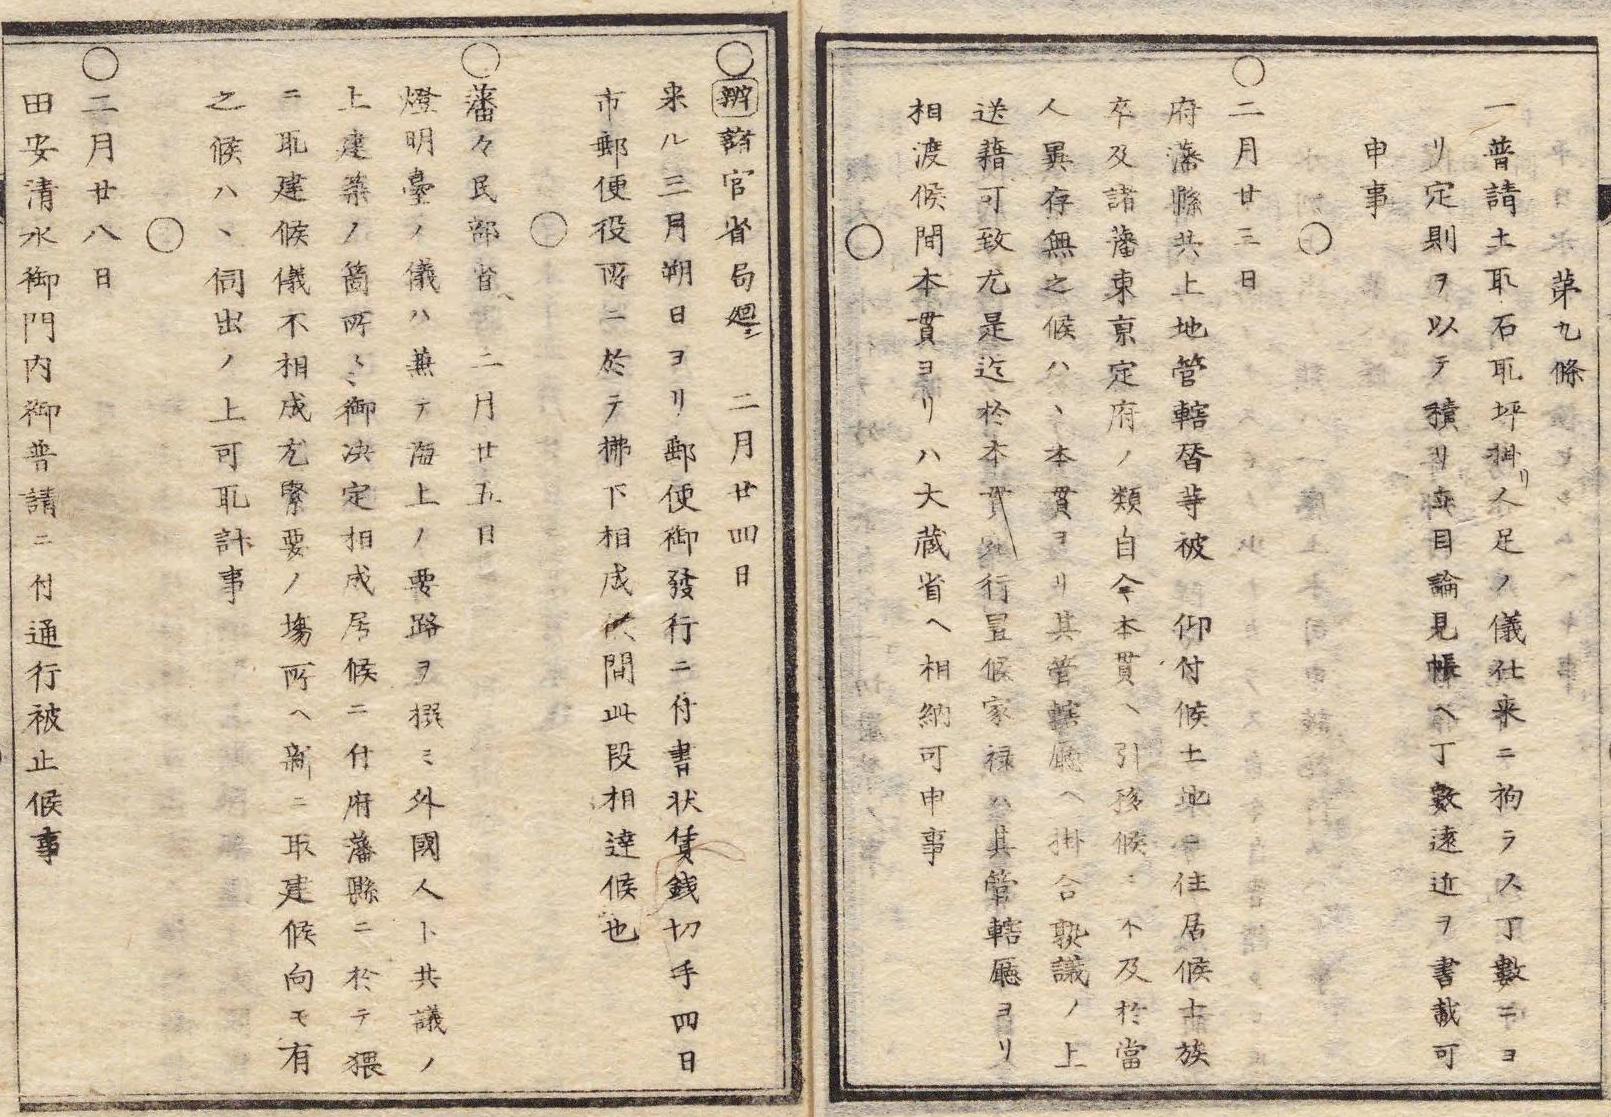 第九條
一普請土取石取坪掛リ人足ノ儀仕来ニ拘ラス丁數ニヨ
リ定則ヲ以テ積リ立目論見帳ヘ丁數遠近ヲ書載可
申事
○
○二月廿三日
府藩縣共上地管轄替等被　仰付候土地ヲ住居候士族
卒及諸藩東京定府ノ類自今本貫ヘ引移候ニ不及於當
人異存無之候ハヽ本貫ヨリ其管轄廳ヘ掛合熟議ノ上
送籍可致尤是迄於本貫行置候家禄ハ其管轄廳ヨリ
相渡候間本貫ヨリハ大蔵省ヘ相納可申事
○
○辨諸官省局廻ニ　二月廿四日
来ル三月朔日ヨリ郵便御發行ニ付書状賃銭切手四日
市郵便役所ニ於テ拂下相成候間此段相達候也
○
○藩々民部省ヘ　二月廿五日
燈明臺ノ儀ハ兼テ海上ノ要路ヲ撰ミ外國人ト共議ノ
上建築ノ箇所々ミ御决定相成居候ニ付府藩縣ニ於テ猥
ニ取建候儀不相成尤緊要ノ塲所ヘ新ニ取建候向モ有
之候ハヽ伺出ノ上可取計事
○
○二月廿八日
田安清水御門内御普請ニ付通行被止候事